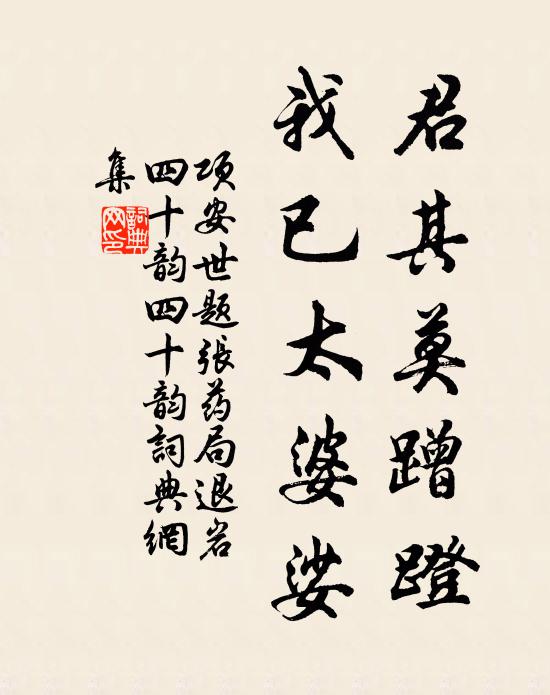 君其莫蹭蹬
我已太婆娑
项安世题张药局退岩
四十韵四十韵詞典網
集
詞典網印